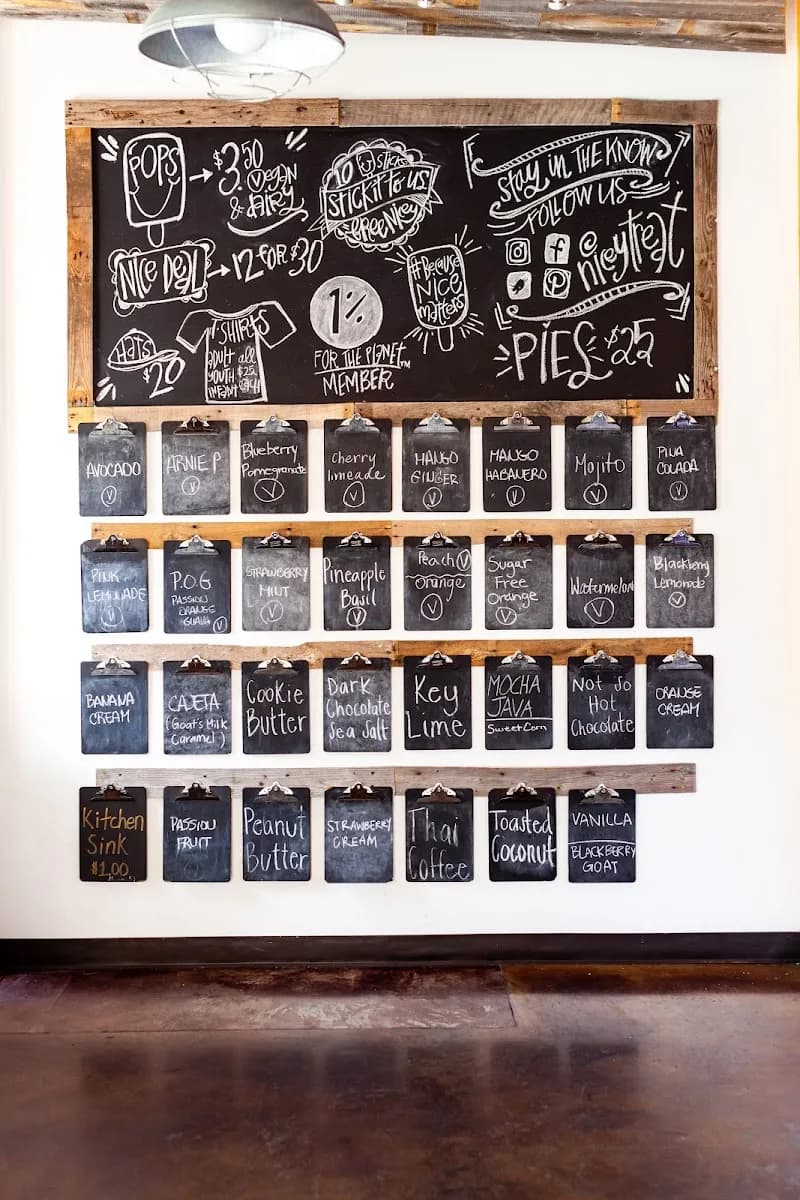 POPS
$3.50
Vegan
& dAiRy
10 sticks
STICK IT to US
FREE Nicey
StAy iN THE KNOW
FOLLOW US
@niceytreat
NICE DEAL
12 FOR $30
#Because
NICE
matters
1%
FOR THE PLANET™
MEMBER
HATS
$20
T-SHIRTS
ADULT all
YOUTH $25
INFANT
PIES $25
AVOCADO
V
ARNIE P.
V
Blueberry
Pomegranate
V
Cherry
limeade
V
MANGO
GINGER
V
MANGO
HABANERO
V
Mojito
V
PINA
COLADA
V
PINK
LEMONADE
V
P.O.G.
PASSION
ORANGE
GUAVA V
STRAWBERRY
MINT
V
Pineapple
Basil
V
Peach V
Orange
V
Sugar
Free
Orange
V
Watermelon
V
Blackberry
Lemonade
V
BANANA
CREAM
CAJETA
(Goat's Milk
Caramel)
Cookie
Butter
Dark
Chocolate
Sea Salt
Key
Lime
MOCHA
JAVA
Sweet Corn
Not So
Hot
Chocolate
ORANGE
CREAM
Kitchen
Sink
$1.00
PASSION
FRUIT
Peanut
Butter
STRAWBERRY
CREAM
Thai
Coffee
Toasted
Coconut
VANILLA
BLACKBERRY
GOAT